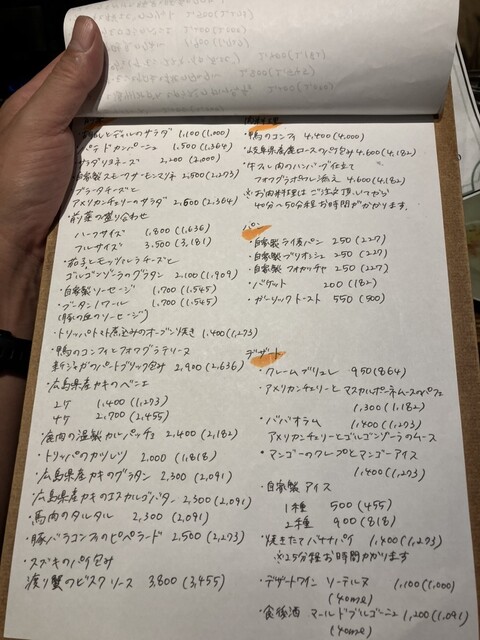 しとディルのサラダ 1,100 (1,000)
パテドカンパーニュ 1,500 (1,364)
サラダリヨネーズ 2,200 (2,000)
自家製スモークサーモンマリネ 2,500 (2,273)
ブラータチーズと
アメリカンチェリーのサラダ 2,600 (2,364)
・前菜の盛り合わせ
ハーフサイズ 1,800 (1,636)
フルサイズ 3,500 (3,181)
・茄子とモッツァレラチーズと
ゴルゴンゾーラのグラタン 2,100 (1,909)
・自家製ソーセージ 1,700 (1,545)
・ブーダンノワール 1,700 (1,545)
(豚の血のソーセージ)
・トリッパトマト煮込みのオーブン焼き 1,400 (1,273)
・鴨のコンフィとフォワグラテリーヌ
のパートブリック包み 2,900 (2,636)
・広島県産カキのベニエ
2ケ 1,400 (1,273)
4ケ 2,700 (2,455)
・鹿肉の温製カルパッチョ 2,400 (2,182)
・トリッパのカツレツ 2,000 (1,818)
・広島県産カキのグラタン 2,300 (2,091)
・広島県産カキのエスカルゴバター 2,300 (2,091)
・馬肉のタルタル 2,300 (2,091)
・豚バラコンフィのピペラード 2,500 (2,273)
・スズキのパイ包み
渡り蟹のビスクソース 3,800 (3,455)
肉料理
・鴨のコンフィ 4,400 (4,000)
・岐阜県産鹿ロースのパイ包み 4,600 (4,182)
・牛フィレ肉のハンバーグ仕立て
フォワグラポワレ添え 4,600 (4,182)
※お肉料理はご注文頂いてから
40分〜50分程お時間がかかります。
パン
・自家製ライ麦パン 250 (227)
・自家製ブリオッシュ 250 (227)
・自家製フォカッチャ 250 (227)
・バゲット 200 (182)
・ガーリックトースト 550 (500)
デザート
・クレームブリュレ 950 (864)
・アメリカンチェリーとマスカルポーネムースのパフェ
1,300 (1,182)
・ババオラム 1,400 (1,273)
アメリカンチェリーとゴルゴンゾーラのムース
・マンゴーのクレープとマンゴーアイス
1,400 (1,273)
・自家製アイス
1種 500 (455)
2種 900 (818)
・焼きたてバナナパイ 1,400 (1,273)
※25分程お時間かかります
・デザートワイン ソーテルヌ 1,100 (1,000)
(40ml)
・食後酒 マールドブルゴーニュ 1,200 (1,091)
(40ml)